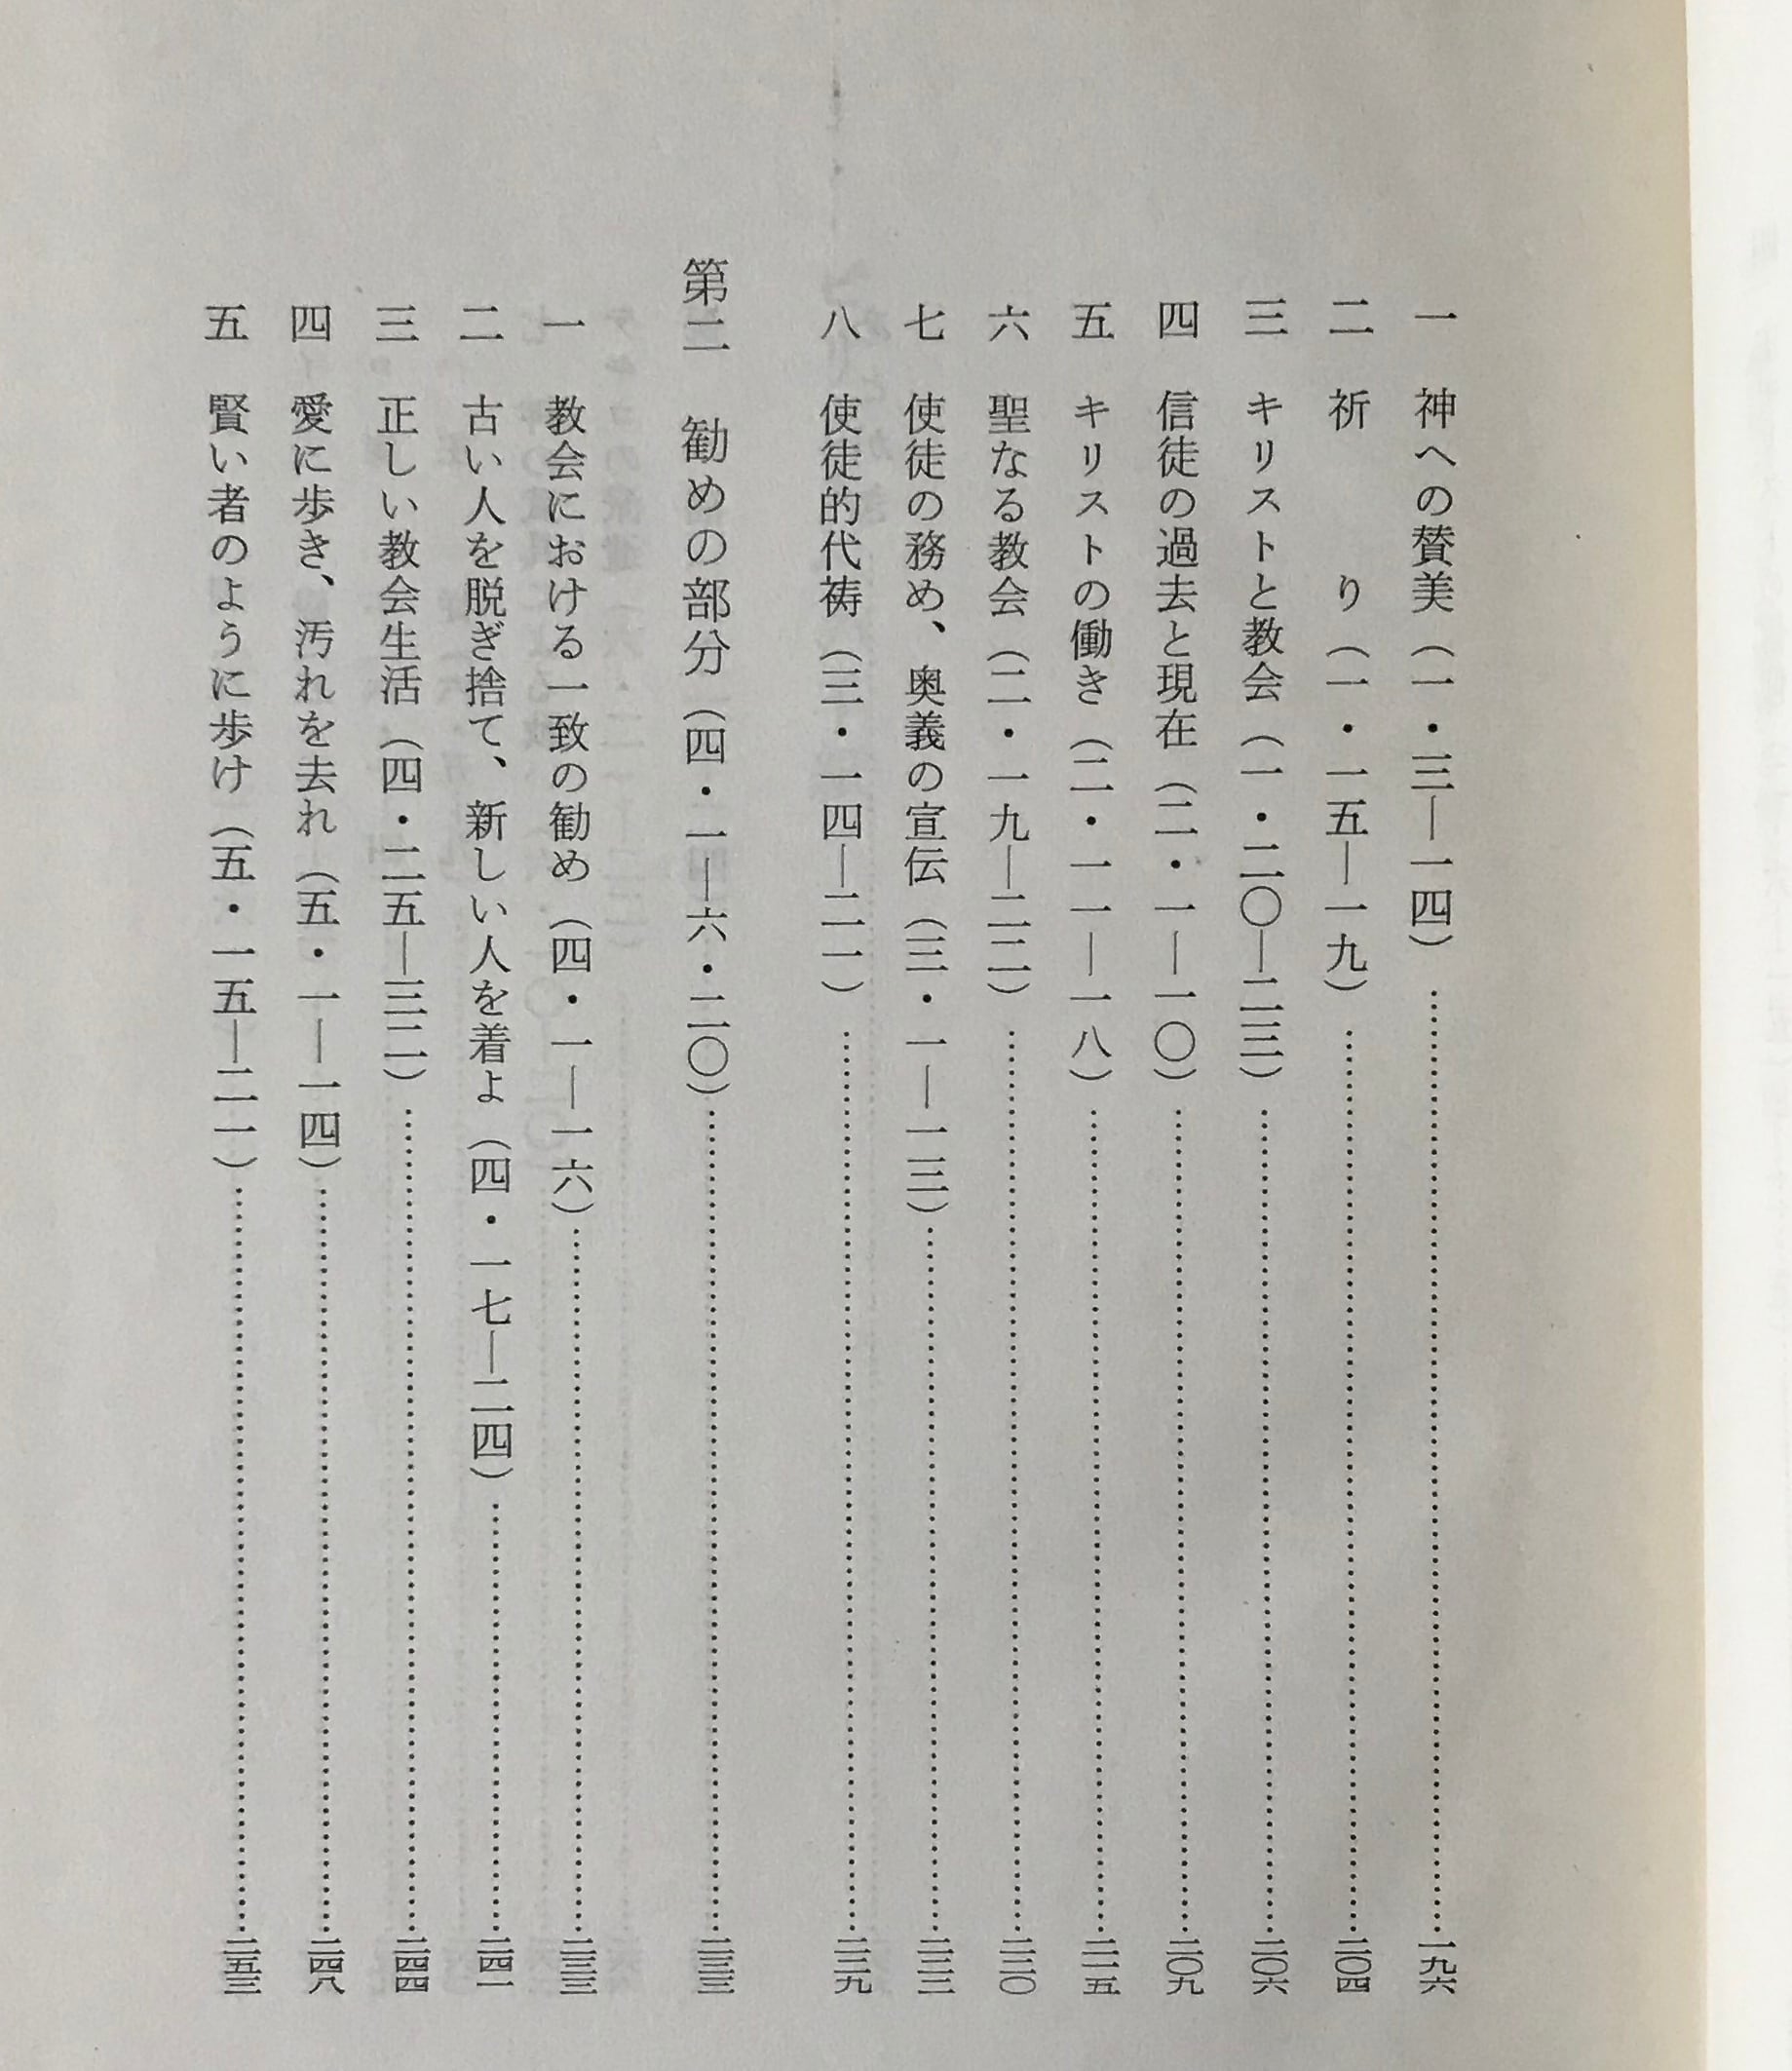 一　神への賛美（一・三―一四）……一九六
二　祈　　　り（一・一五―一九）……二〇四
三　キリストと教会（一・二〇―二三）……二〇六
四　信徒の過去と現在（二・一―一〇）……二〇九
五　キリストの働き（二・一一―一八）……二一五
六　聖なる教会（二・一九―二二）……二二〇
七　使徒の務め、奥義の宣伝（三・一―一三）……二二三
八　使徒的代祷（三・一四―二一）……二二九
第二　勧めの部分（四・一―六・二〇）……二三三
一　教会における一致の勧め（四・一―一六）……二三三
二　古い人を脱ぎ捨て、新しい人を着よ（四・一七―二四）……二四一
三　正しい教会生活（四・二五―三二）……二四四
四　愛に歩き、汚れを去れ（五・一―一四）……二四八
五　賢い者のように歩け（五・一五―二一）……二五三